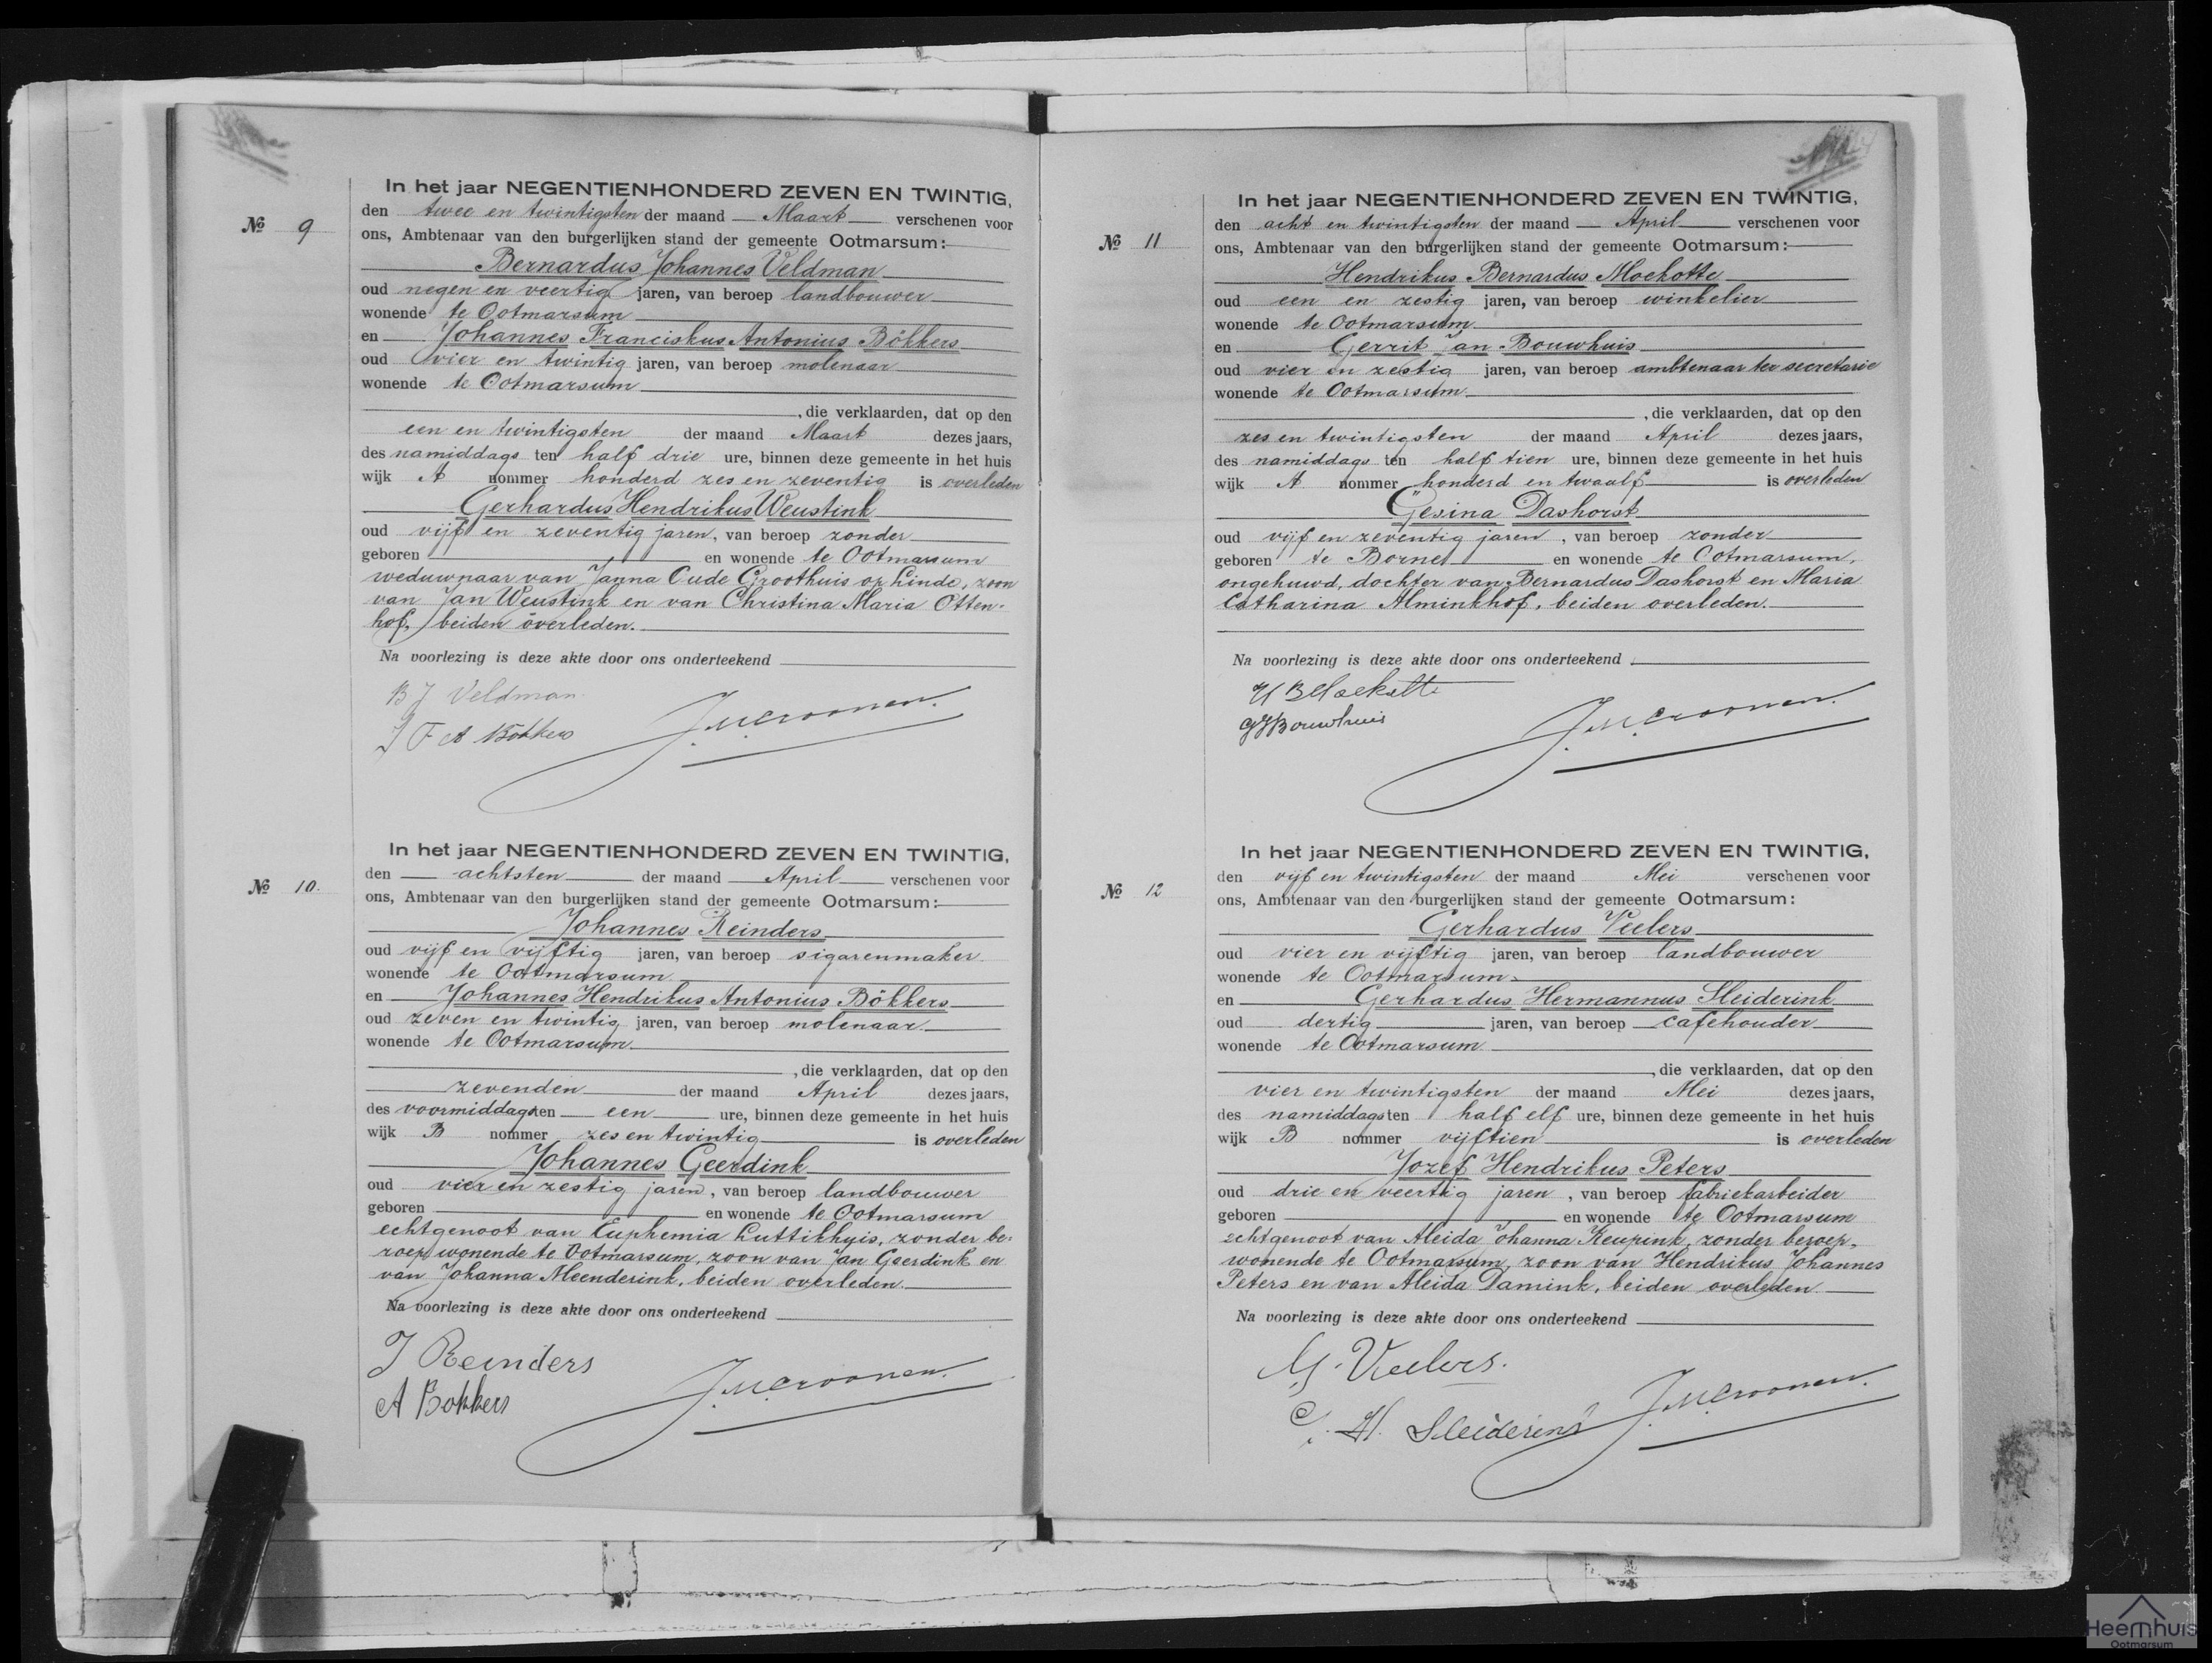 In het jaar NEGENTIENHONDERD ZEVEN EN TWINTIG,
№ 9
den twee en twintigsten der maand Maart verschenen voor
ons, Ambtenaar van den burgerlijken stand der gemeente Ootmarsum:
Bernardus Johannes Veldman
oud negen en veertig jaren, van beroep landbouwer
wonende te Ootmarsum
en Johannes Franciskus Antonius Bökkers
oud vier en twintig jaren, van beroep molenaar
wonende te Ootmarsum
, die verklaarden, dat op den
een en twintigsten der maand Maart dezes jaars,
des namiddags ten half drie ure, binnen deze gemeente in het huis
wijk A nommer honderd zes en zeventig is overleden
Gerhardus Hendrikus Weustink
oud vijf en zeventig jaren, van beroep zonder
geboren en wonende te Ootmarsum
weduwnaar van Janna Oude Groothuis op Linde, zoon
van Jan Weustink en van Christina Maria Otten-
hof, beiden overleden.
Na voorlezing is deze akte door ons onderteekend
B J Veldman
J F A Bökkers
J. M. Croonen.
In het jaar NEGENTIENHONDERD ZEVEN EN TWINTIG,
№ 10.
den achtsten der maand April verschenen voor
ons, Ambtenaar van den burgerlijken stand der gemeente Ootmarsum:
Johannes Reinders
oud vijf en vijftig jaren, van beroep sigarenmaker
wonende te Ootmarsum
en Johannes Hendrikus Antonius Bökkers
oud zeven en twintig jaren, van beroep molenaar
wonende te Ootmarsum.
, die verklaarden, dat op den
zevenden der maand April dezes jaars,
des voormiddags ten een ure, binnen deze gemeente in het huis
wijk B nommer zes en twintig is overleden
Johannes Geerdink
oud vier en zestig jaren, van beroep landbouwer
geboren en wonende te Ootmarsum
echtgenoot van Euphemia Luttikhuis, zonder be-
roep, wonende te Ootmarsum, zoon van Jan Geerdink en
van Johanna Meenderink, beiden overleden.
Na voorlezing is deze akte door ons onderteekend
J Reinders
A Bokkers
J. M. Croonen.
In het jaar NEGENTIENHONDERD ZEVEN EN TWINTIG,
№ 11
den acht en twintigsten der maand April verschenen voor
ons, Ambtenaar van den burgerlijken stand der gemeente Ootmarsum:
Hendrikus Bernardus Moekotte
oud een en zestig jaren, van beroep winkelier
wonende te Ootmarsum
en Gerrit Jan Bouwhuis
oud vier en zestig jaren, van beroep ambtenaar ter secretarie
wonende te Ootmarsum.
, die verklaarden, dat op den
zes en twintigsten der maand April dezes jaars,
des namiddags ten half tien ure, binnen deze gemeente in het huis
wijk A nommer honderd en twaalf is overleden
Gesina Dashorst
oud vijf en zeventig jaren, van beroep zonder
geboren te Borne en wonende te Ootmarsum,
ongehuwd, dochter van Bernardus Dashorst en Maria
Catharina Alminkhof, beiden overleden.
Na voorlezing is deze akte door ons onderteekend
H B Moekotte
G J Bouwhuis
J. M. Croonen.
In het jaar NEGENTIENHONDERD ZEVEN EN TWINTIG,
№ 12
den vijf en twintigsten der maand Mei verschenen voor
ons, Ambtenaar van den burgerlijken stand der gemeente Ootmarsum:
Gerhardus Veelers
oud vier en vijftig jaren, van beroep landbouwer
wonende te Ootmarsum
en Gerhardus Hermannus Sleiderink
oud dertig jaren, van beroep cafehouder
wonende te Ootmarsum
, die verklaarden, dat op den
vier en twintigsten der maand Mei dezes jaars,
des namiddags ten half elf ure, binnen deze gemeente in het huis
wijk B nommer vijftien is overleden
Jozef Hendrikus Peters
oud drie en veertig jaren, van beroep fabriekarbeider
geboren en wonende te Ootmarsum
echtgenoot van Aleida Johanna Keupink, zonder beroep,
wonende te Ootmarsum, zoon van Hendrikus Johannes
Peters en van Aleida Damink, beiden overleden.
Na voorlezing is deze akte door ons onderteekend
G. Veelers.
G. H. Sleiderink
J. M. Croonen.
Heemhuis
Ootmarsum